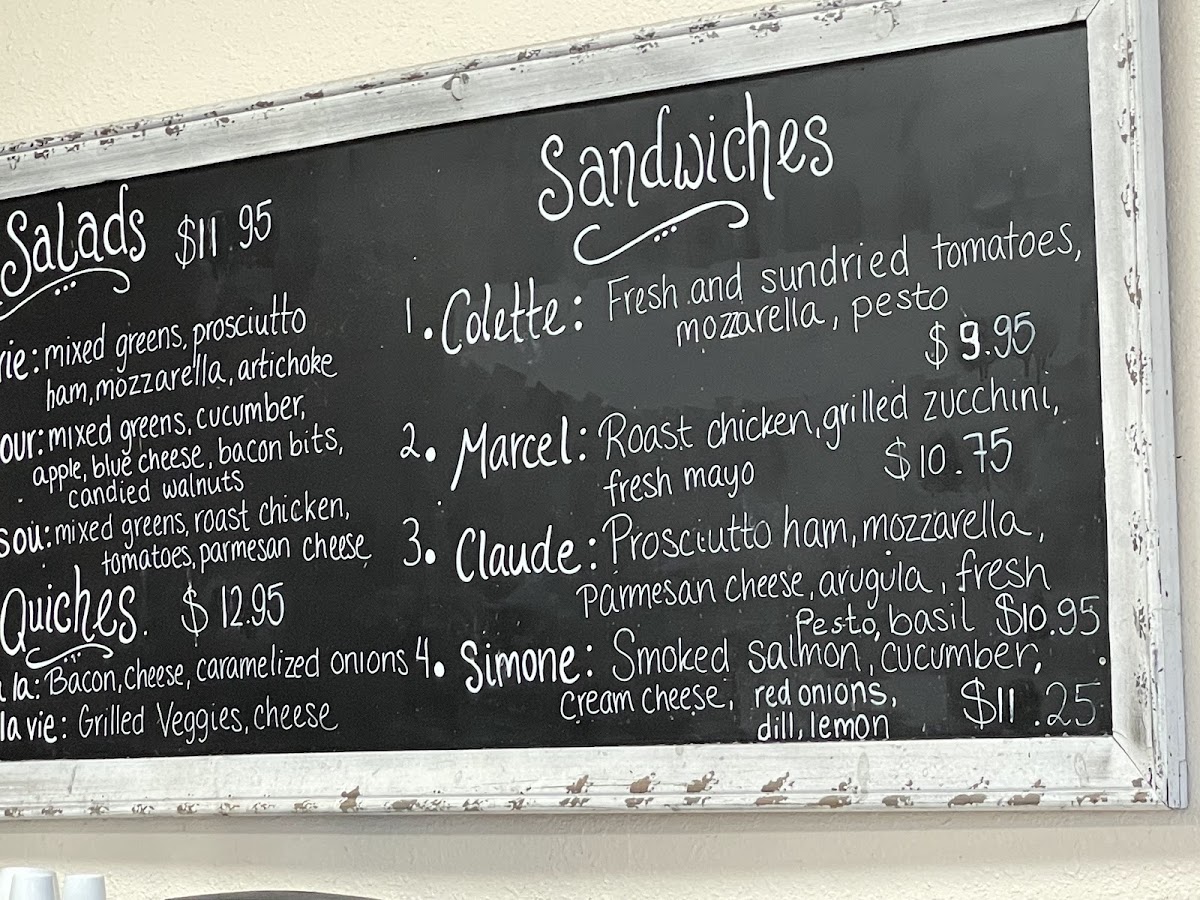 Salads $11.95
rie: mixed greens, prosciutto
ham, mozzarella, artichoke
our: mixed greens, cucumber,
apple, blue cheese, bacon bits,
candied walnuts
sou: mixed greens, roast chicken,
tomatoes, parmesan cheese
Quiches. $12.95
la: Bacon, cheese, caramelized onions
la vie: Grilled Veggies, cheese
Sandwiches
1. Colette: Fresh and sundried tomatoes,
mozzarella, pesto
$9.95
2. Marcel: Roast chicken, grilled zucchini,
fresh mayo $10.75
3. Claude: Prosciutto ham, mozzarella,
Parmesan cheese, arugula, fresh
Pesto, basil $10.95
4. Simone: Smoked salmon, cucumber,
cream cheese, red onions,
dill, lemon $11.25